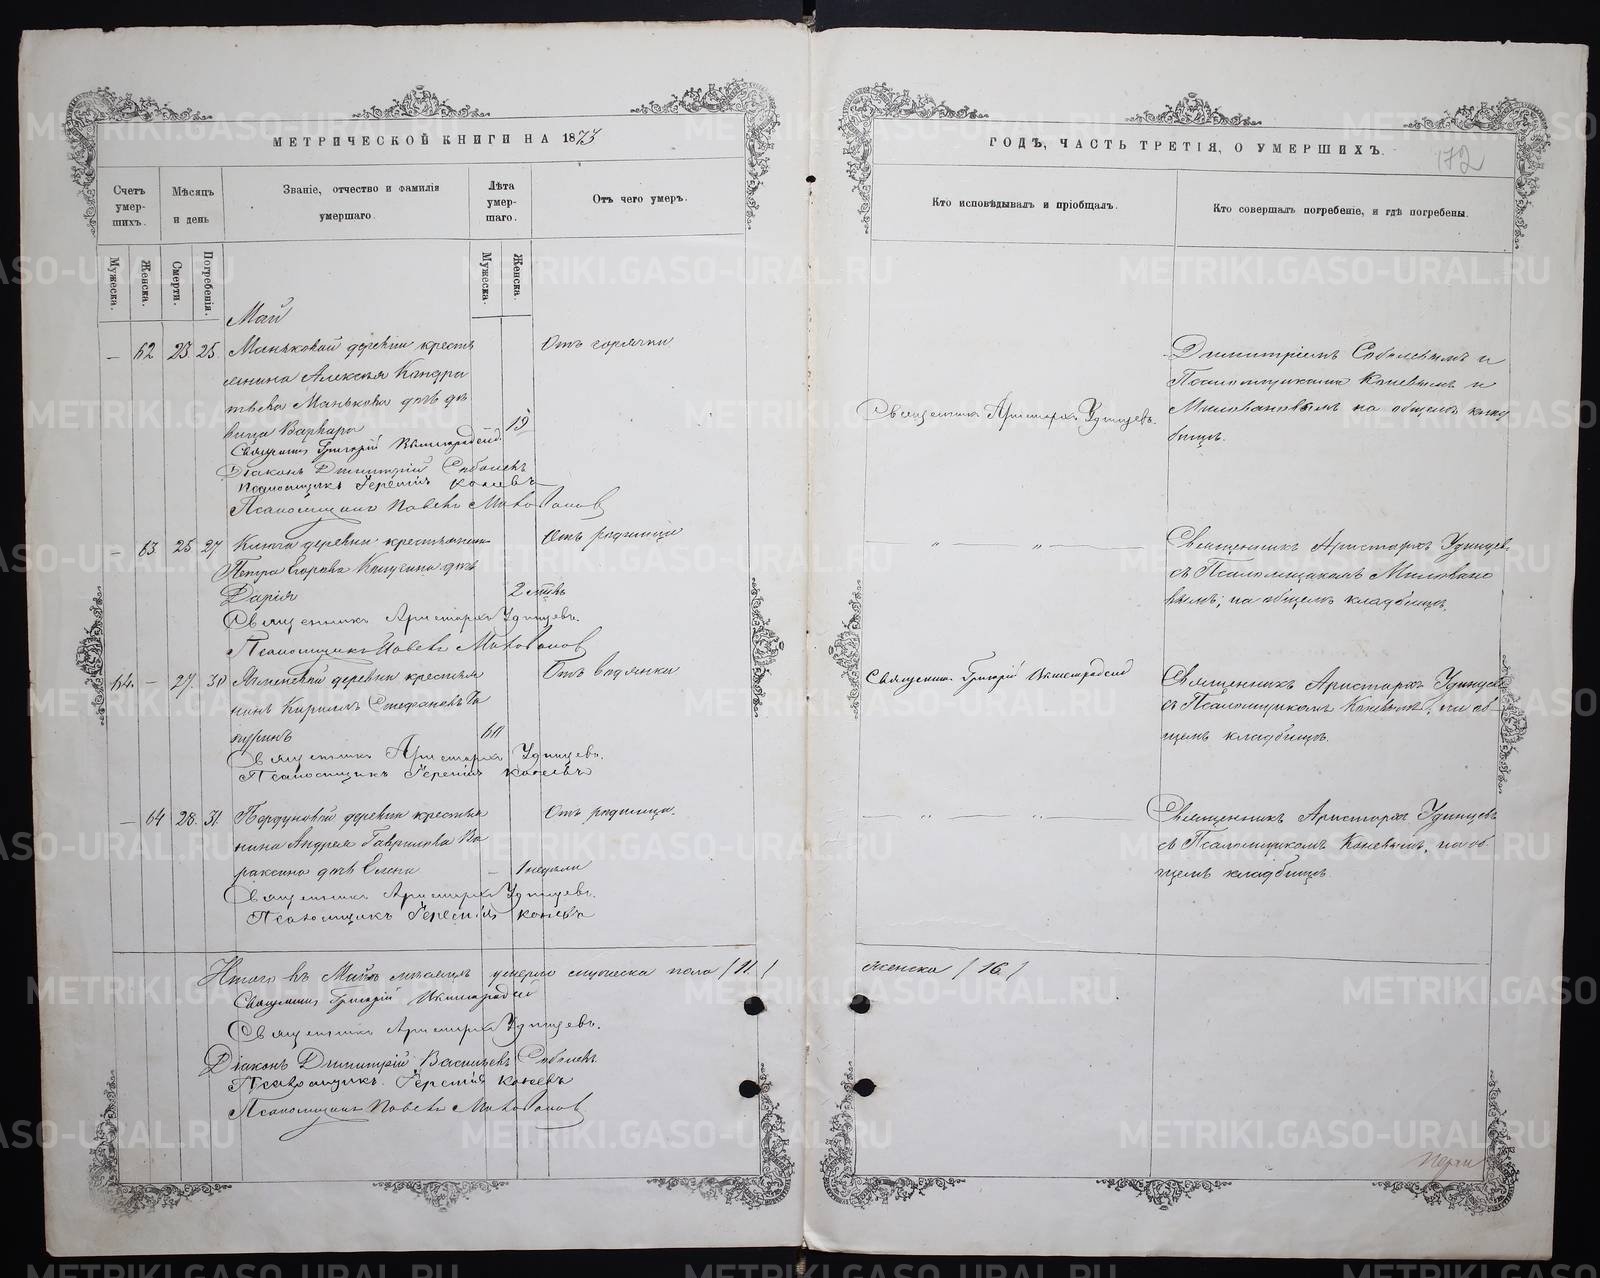 МЕТРИЧЕСКОЙ КНИГИ НА 1873
Счетъ умер-шихъ.
Мѣсяцъ и день
Званіе, отчество и фамилія умершаго.
Лѣта умер-шаго.
Отъ чего умеръ.
Мужеска.
Женска.
Смерти.
Погребенія.
Мужеска.
Женска.
Май
— 62 23. 25. Маньковой деревни кресть
янина Алексѣя Кондра
тьева Манькова дочь дѣ
вица Варвара 19
Отъ горячки
Священникъ Григорій
Діаконъ Димитрій Соболевъ
Псаломщикъ Терентій Коневъ
Псаломщикъ Павелъ Миловановъ
— 63 25 27 деревни крестьянина
Петра Егорова дочь
Дарія 2 мѣс.
Отъ родимца
Священникъ Аристархъ Удинцевъ.
Псаломщикъ Павелъ Миловановъ
64. — 27. 30 деревни крестья
нинъ Кириллъ Стефановъ 60
Отъ водянки
Священникъ Аристархъ Удинцевъ.
Псаломщикъ Терентій Коневъ
— 64 28. 31. деревни крестья
нина Андрея Гаврилова
дочь Елена — 1 недѣли
Отъ родимца.
Священникъ Аристархъ Удинцевъ.
Псаломщикъ Терентій Коневъ
Итого въ Маѣ мѣсяцѣ умерло мужеска пола /11./
Священникъ Григорій
Священникъ Аристархъ Удинцевъ.
Діаконъ Димитрій Васильевъ Соболевъ
Псаломщикъ Терентій Коневъ
Псаломщикъ Павелъ Миловановъ
ГОДЪ, ЧАСТЬ ТРЕТІЯ, О УМЕРШИХЪ.
172
Кто исповѣдывалъ и пріобщалъ.
Кто совершалъ погребеніе, и гдѣ погребены.
Священникъ Аристархъ Удинцевъ.
Димитріемъ Соболевымъ и
Псаломщиками Коневымъ и
Миловановымъ на общемъ клад
бищѣ.
— „ „ —
Священникъ Аристархъ Удинцевъ
съ Псаломщикомъ Миловано
вымъ, на общемъ кладбищѣ.
Священникъ Григорій
Священникъ Аристархъ Удинцевъ
съ Псаломщикомъ Коневымъ, на об
щемъ кладбищѣ.
— „ „ —
Священникъ Аристархъ Удинцевъ
съ Псаломщикомъ Коневымъ, на об
щемъ кладбищѣ.
женска /16./
METRIKI.GASO-URAL.RU